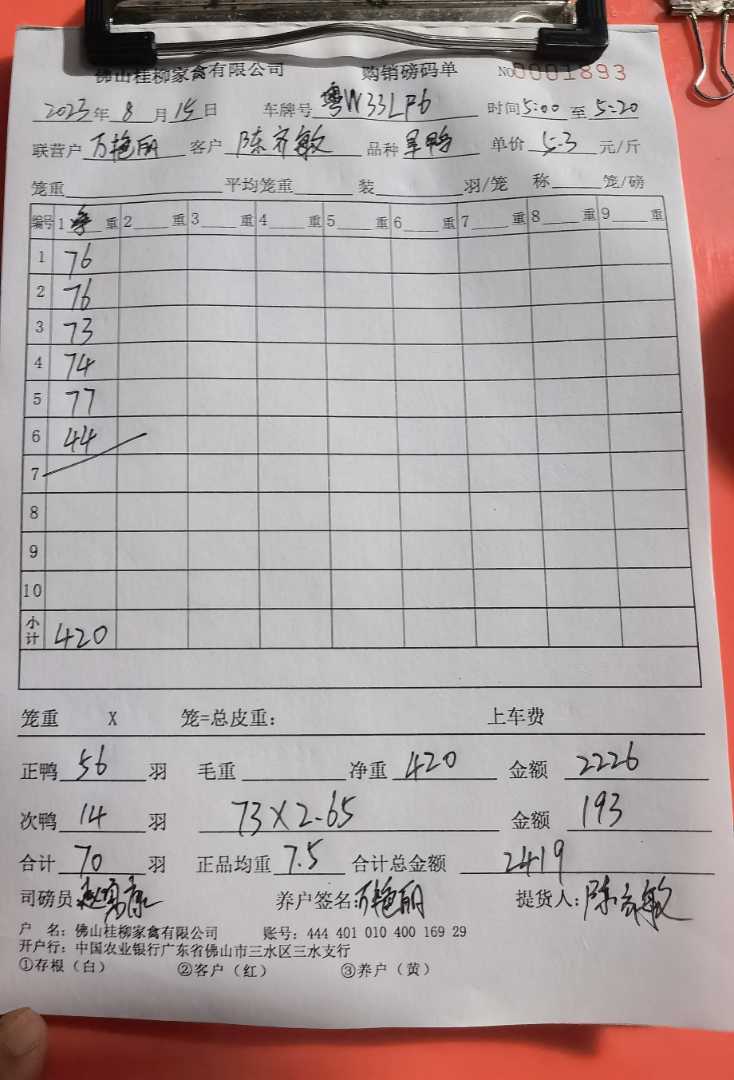 佛山桂柳家禽有限公司 购销磅码单 NO 0001893
2023年8月15日 车牌号 粤W33LP6 时间5:00至5:20
联营户 万艳丽 客户 陈齐敏 品种 旱鸭 单价 5.3 元/斤
笼重 平均笼重 装 羽/笼 称 笼/磅
编号 1 净重 2 重 3 重 4 重 5 重 6 重 7 重 8 重 9 重
1 76
2 76
3 73
4 74
5 77
6 44
7
8
9
10
小计 420
笼重 X 笼=总皮重: 上车费
正鸭 56 羽 毛重 净重 420 金额 2226
次鸭 14 羽 73X2.65 金额 193
合计 70 羽 正品均重 7.5 合计总金额 2419
司磅员: 养户签名:万艳丽 提货人:陈齐敏
户 名: 佛山桂柳家禽有限公司 账号: 444 401 010 400 169 29
开户行: 中国农业银行广东省佛山市三水区三水支行
①存根(白) ②客户(红) ③养户(黄)